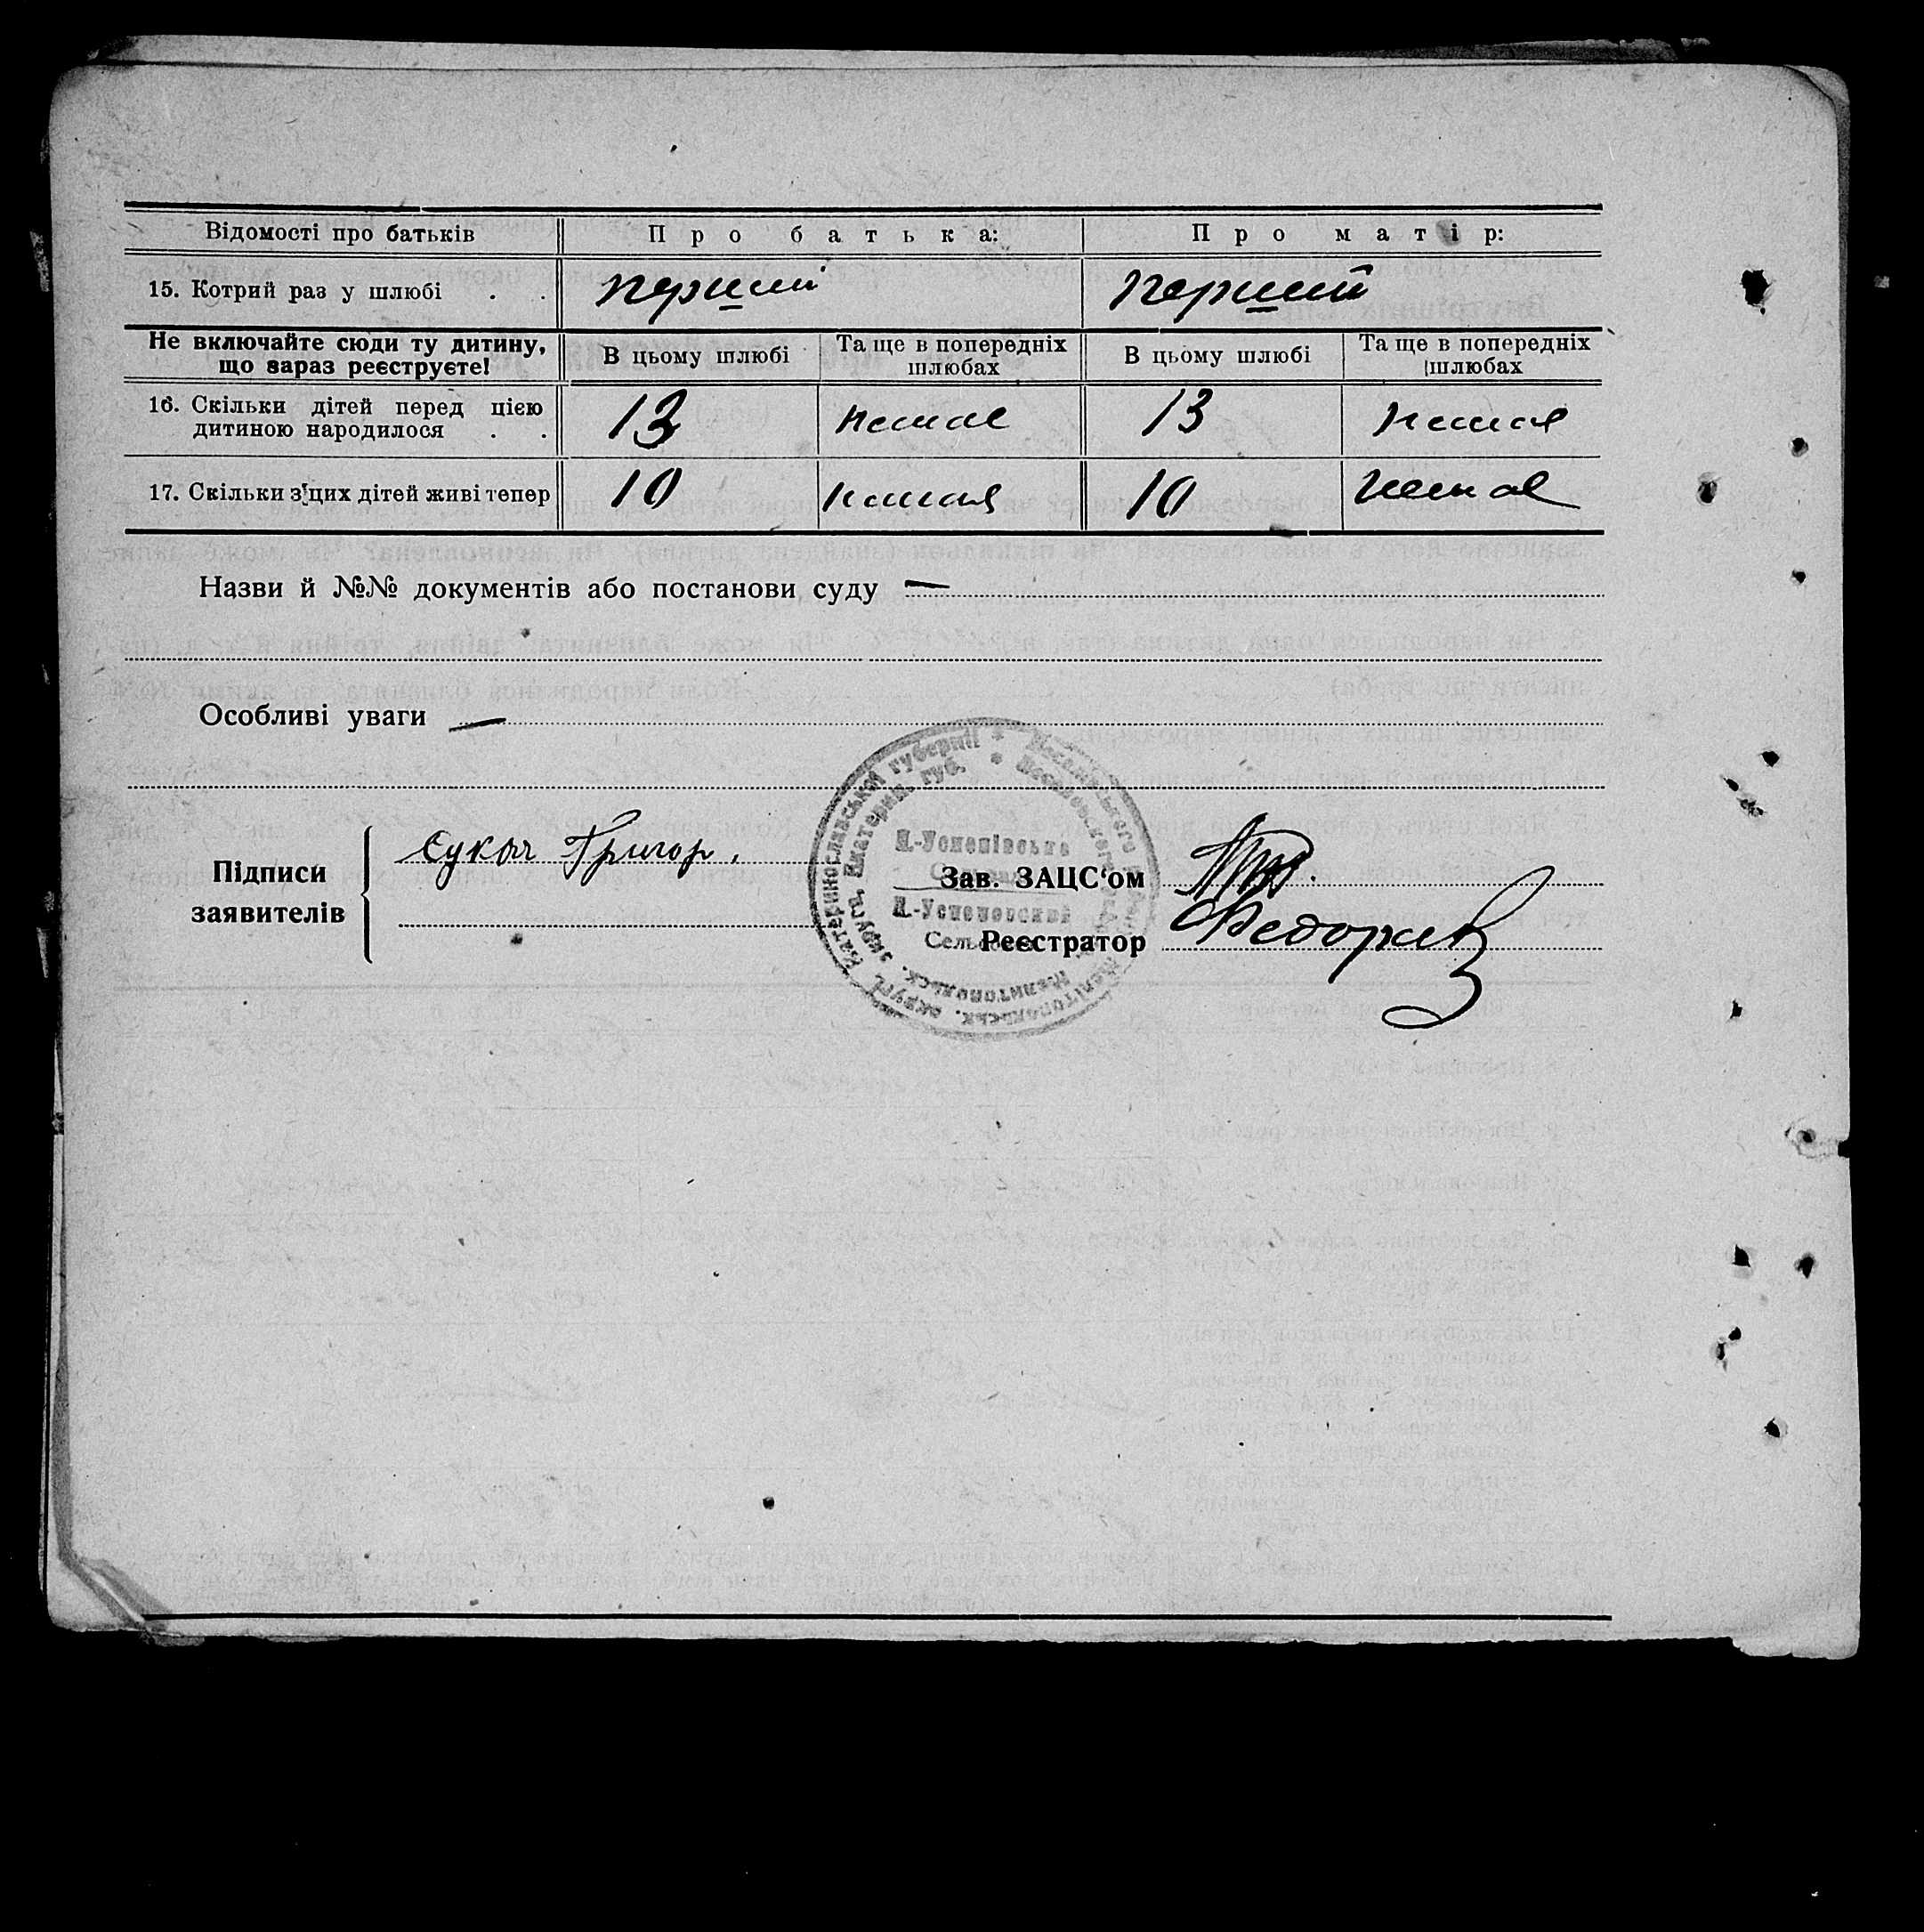 Відомості про батьків Про батька: Про матір:
15. Котрий раз у шлюбі . . перший перший
Не включайте сюди ту дитину, що зараз реєструєте! В цьому шлюбі Та ще в попередніх шлюбах В цьому шлюбі Та ще в попередніх шлюбах
16. Скільки дітей перед цією дитиною народилося . . 13 немає 13 немає
17. Скільки з'цих дітей живі тепер 10 немає 10 немає
Назви й №№ документів або постанови суду —
Особливі уваги —
Підписи заявителів
Сукач Григор.
Катеринославської губернії
Екатерин. губ.
Н.-Успенівська
Н.-Успеновский
Мелітопольськ. округи
Мелитопольск. округ.
Зав. ЗАЦС‘ом
Реєстратор